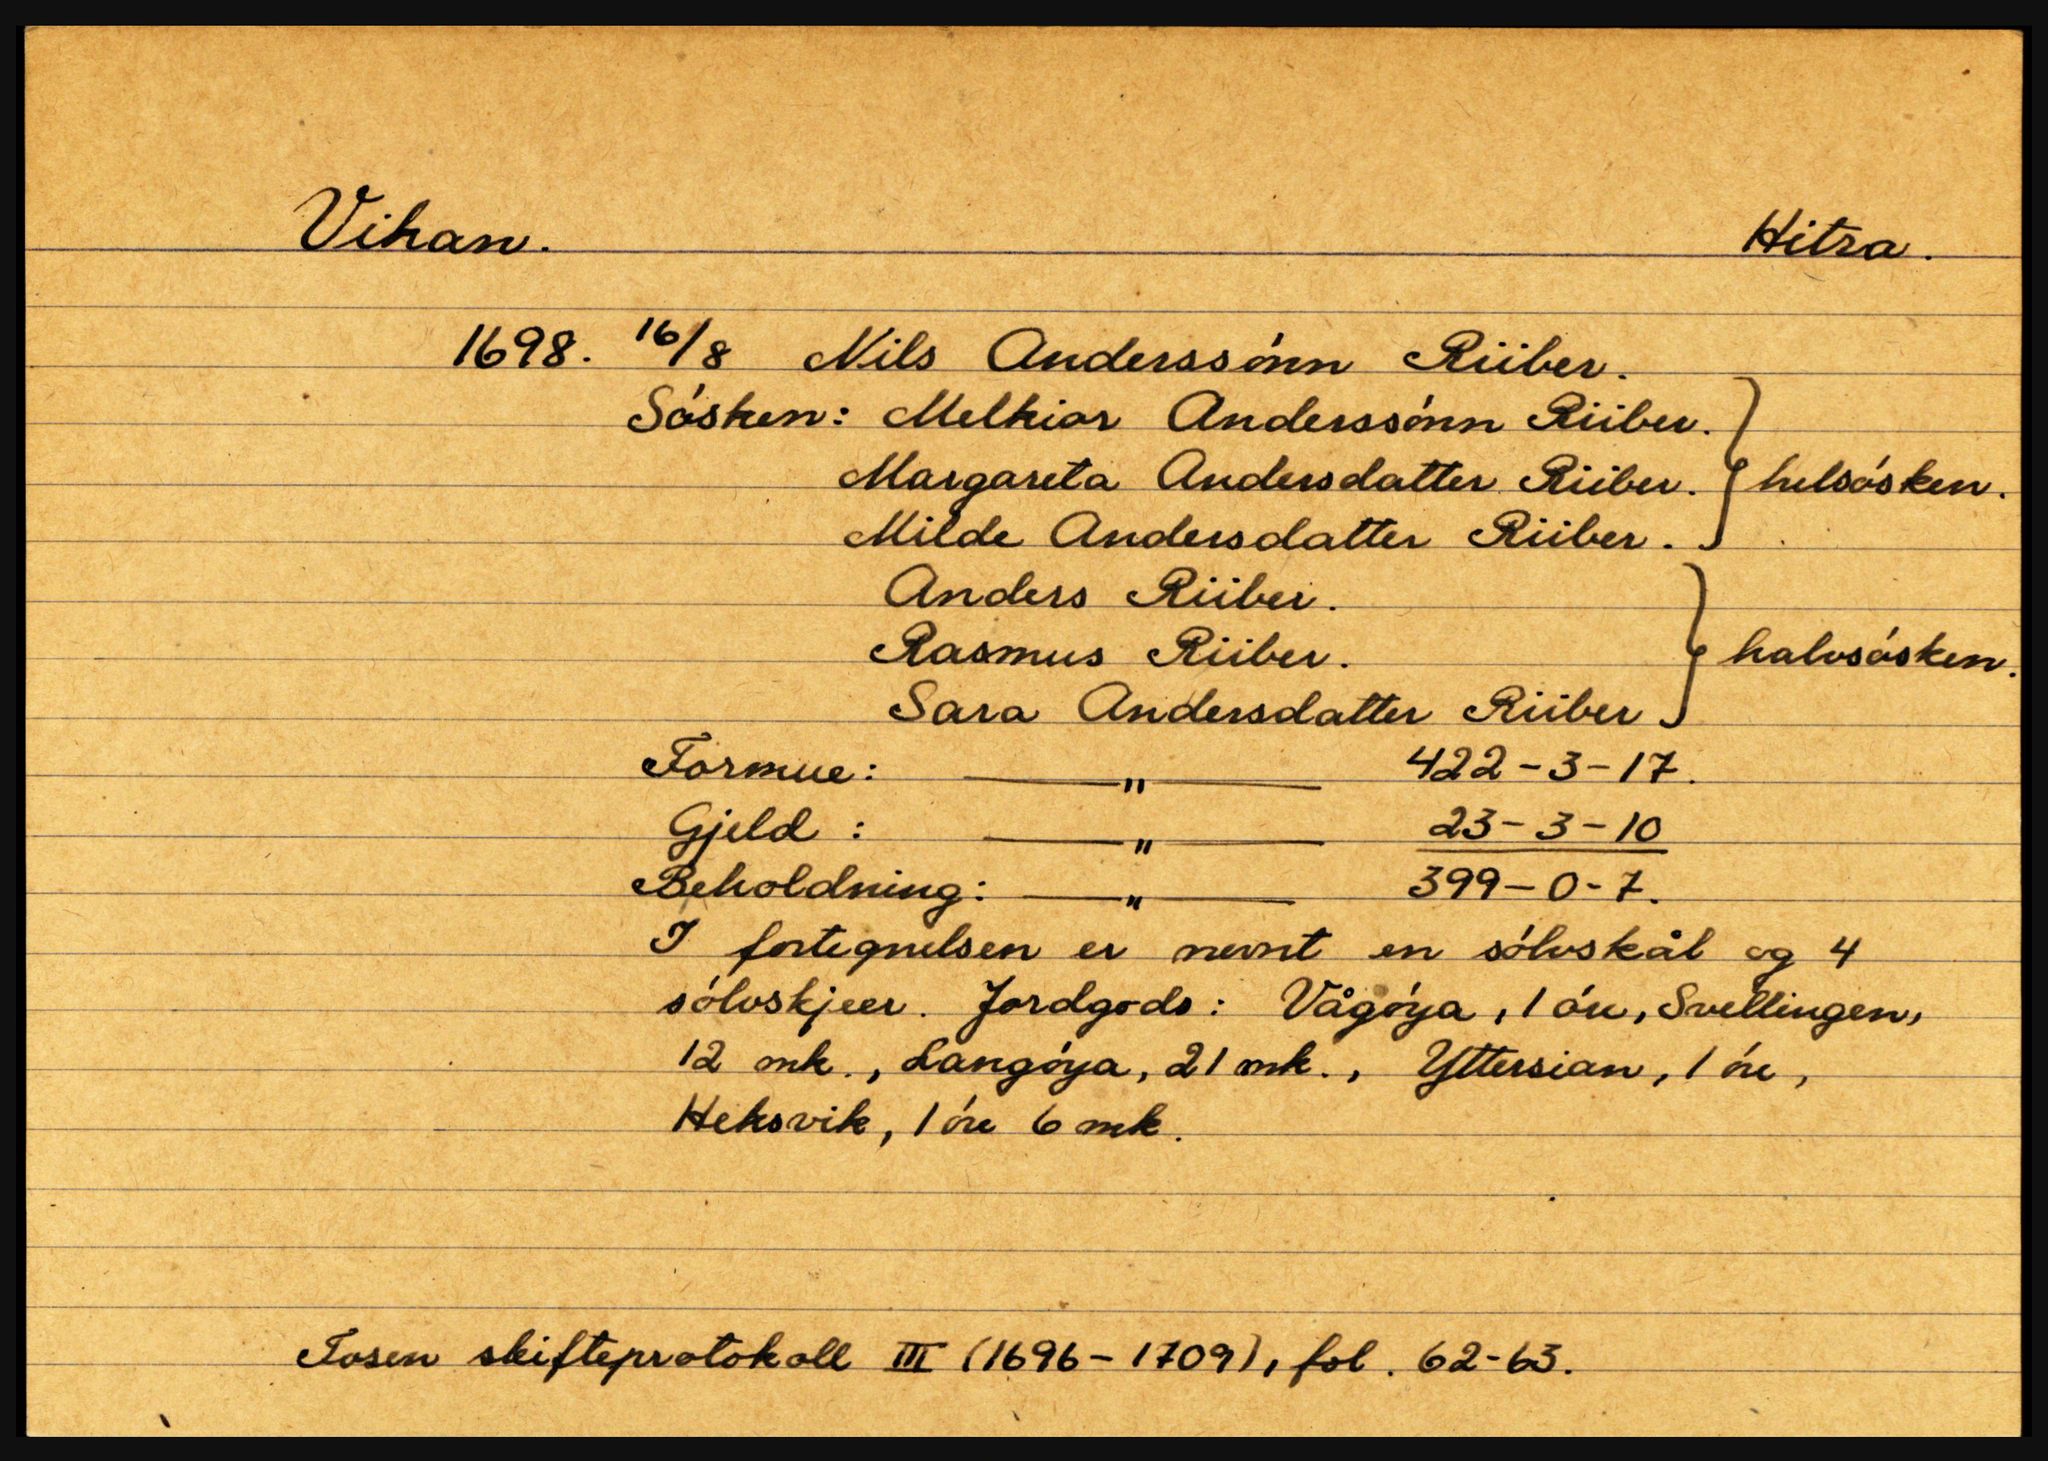 Vihan. Hitra.
1698. 16/8 Nils Anderssónn Riiber.
Sósken: Melkior Anderssónn Riiber.
Margareta Andersdatter Riiber. } helsósken.
Milde Andersdatter Riiber.
Anders Riiber.
Rasmus Riiber. } halvsósken.
Sara Andersdatter Riiber
Formue: —— " —— 422-3-17.
Gjeld : —— " —— 23-3-10
Beholdning: —— " —— 399-0-7.
I fortegnelsen er nevnt en sólvskål og 4
sólvskjeer. Jordgods: Vågóya, 1 óre, Svellingen,
12 mk., Langóya, 21 mk., Yttersian, 1 óre,
Heksvik, 1 óre 6 mk.
Fosen skifteprotokoll III (1696-1709), fol. 62-63.